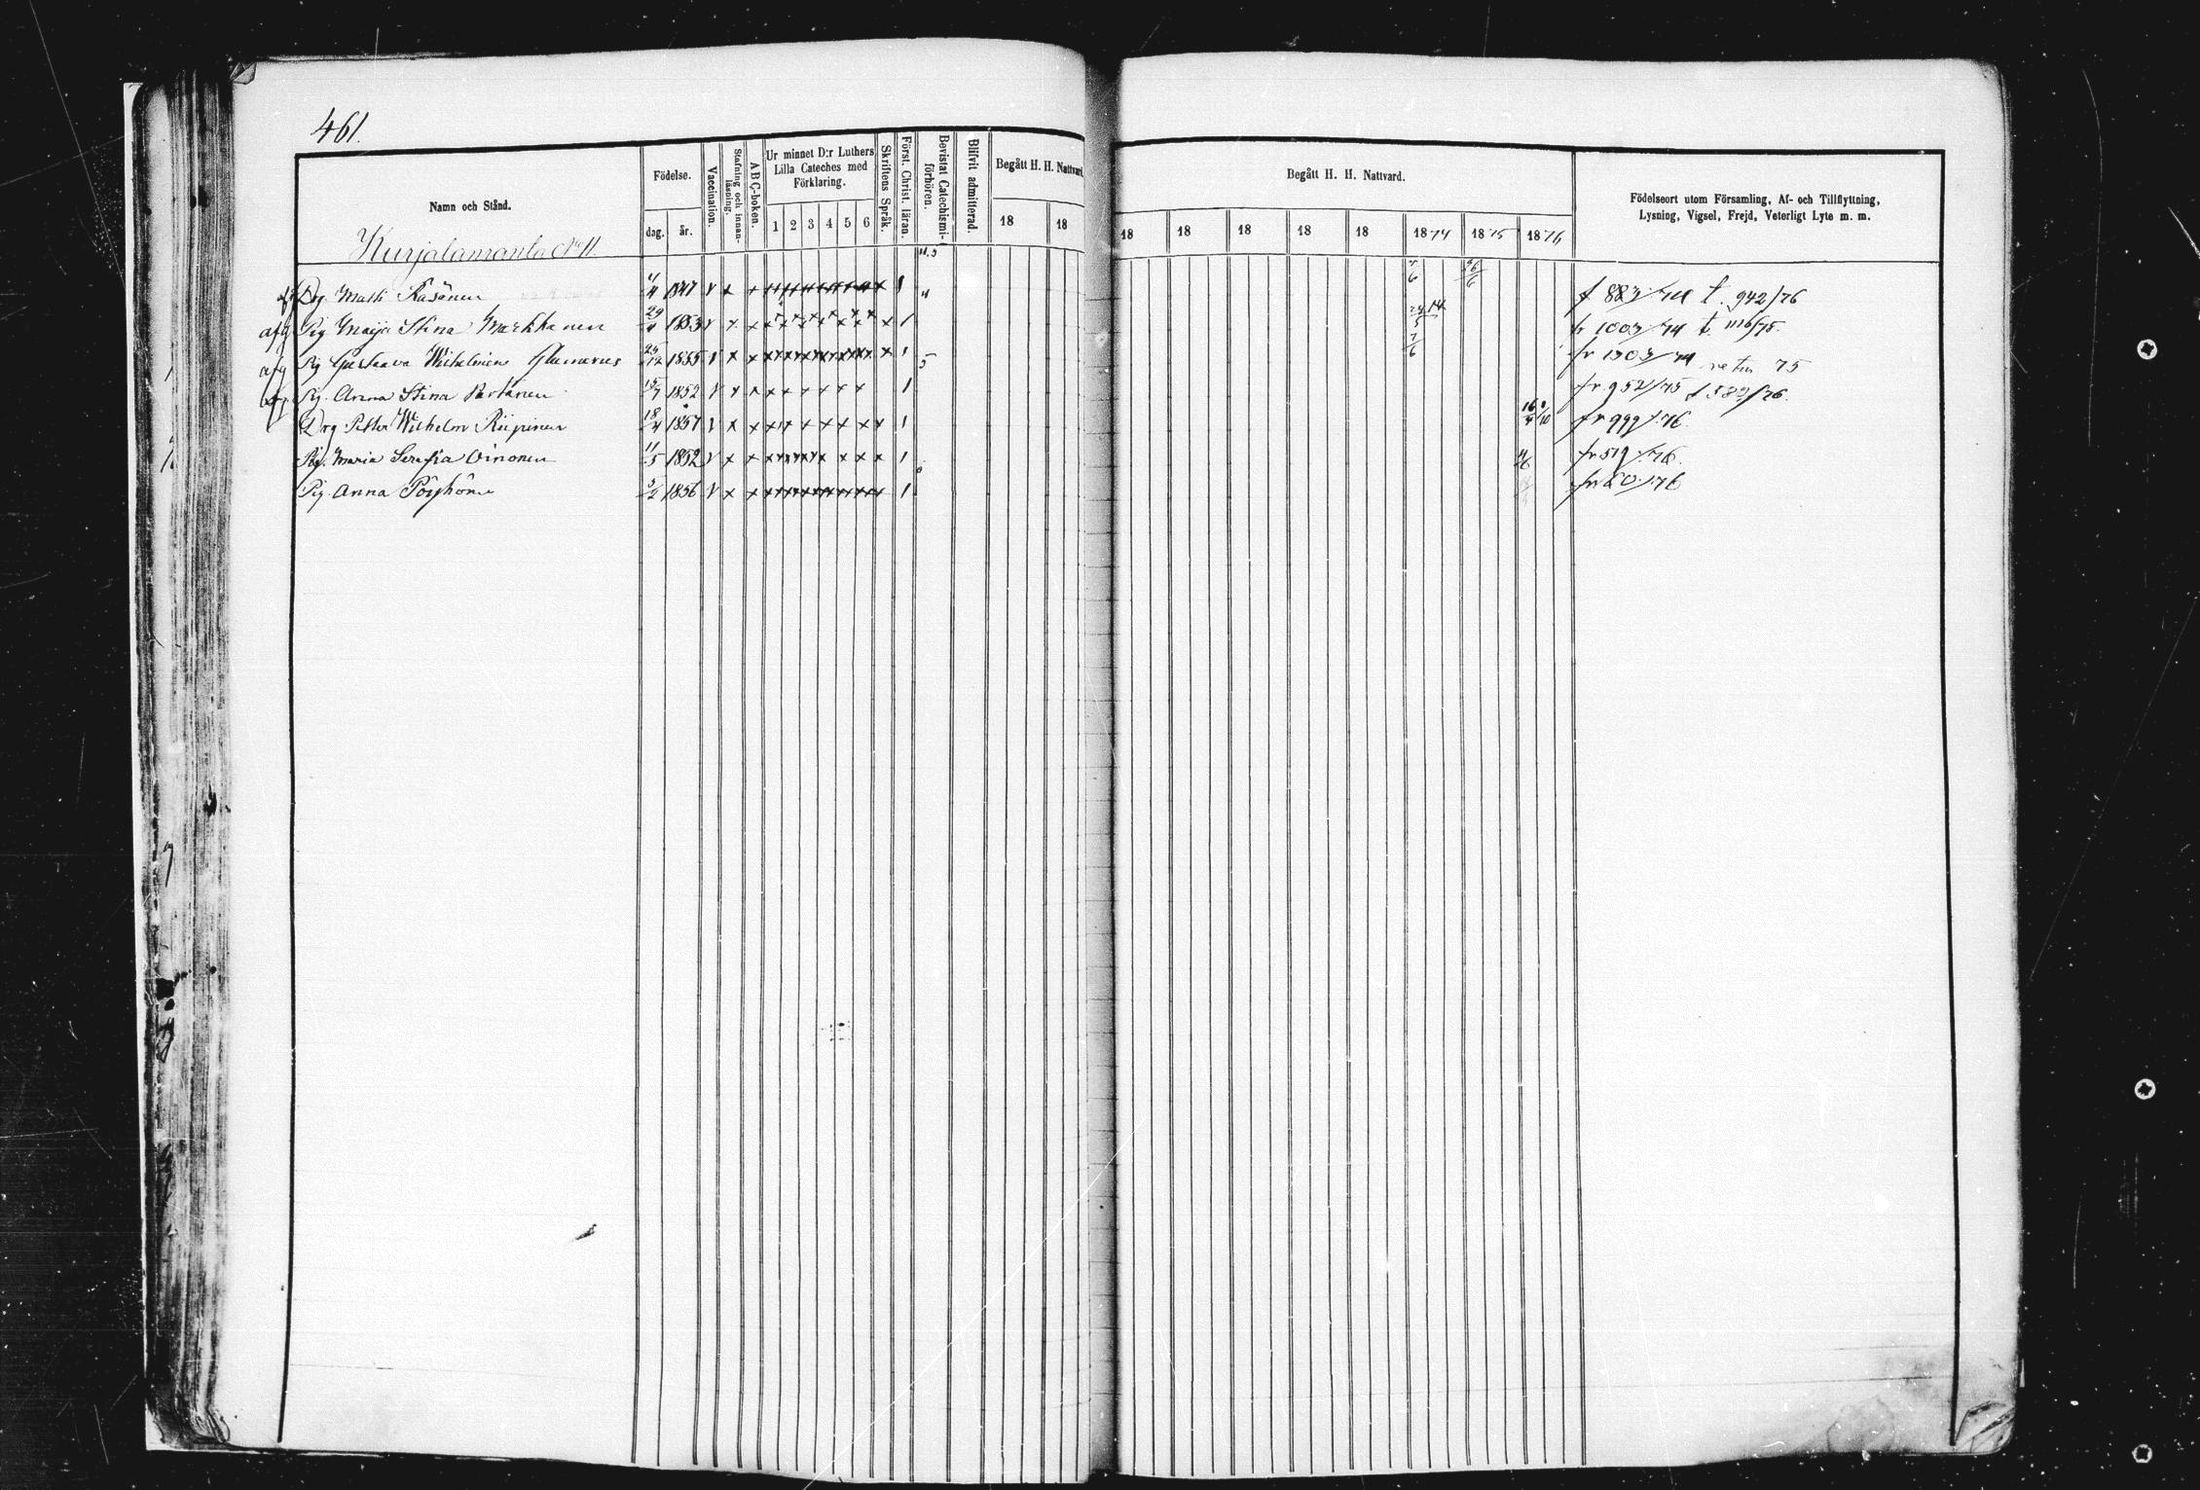 461.
Namn och Stånd.
Födelse.
dag. år.
Vaccination.
Stafning och innanläsning.
A B C-boken.
Ur minnet D:r Luthers Lilla Cateches med Förklaring.
1 2 3 4 5 6
Skriftens Språk.
Först. Christ. läran.
Bevistat Catechismi-förhören.
Blifvit admitterad.
Begått H. H. Nattvard.
18 18
Begått H. H. Nattvard.
18 18 18 18 18 1874 1875 1876
Födelseort utom Församling, Af- och Tillflyttning,
Lysning, Vigsel, Frejd, Veterligt Lyte m. m.
Kurjalamanla No 11.
Drg. Matti Räsänen 4/4 1847 f. 883/74 t. 942/76
afg Pig Maija Stina Markkanen 29/4 1853 fr 1003/74 t. 1116/75.
afg Pig Gustaava Wilhelmina 25/12 1855 fr 1303/74 retur 75
Pig. Anna Stina Partanen 15/7 1852 fr. 952/75 t 582/76
Drg Petter Wilhelm Riipinen 18/4 1857 fr 999/76.
Pig. Maria Serafia Oinonen 11/5 1852 fr 519/76.
Pig. Anna Pöyhönen 3/2 1856 fr 60/76